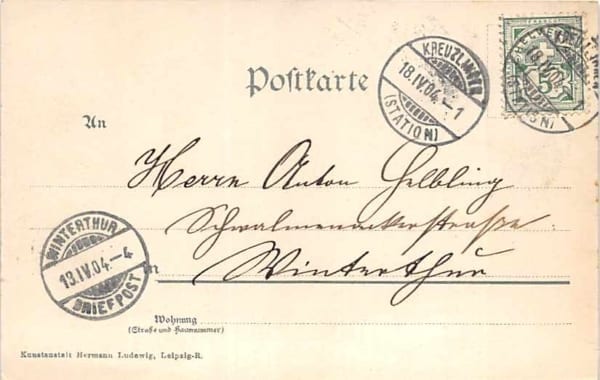 Postkarte
KREUZLINGEN
18.IV.04.–1
(STATION)
FRANCO
5
18.IV.04
(STATION)
An
Herrn Anton Helbling
Schwalmenackerstraße.
Winterthur
in
WINTERTHUR
18.IV.04.–4
BRIEFPOST
Wohnung
(Straße und Hausnummer)
Kunstanstalt Hermann Ludewig, Leipzig-R.